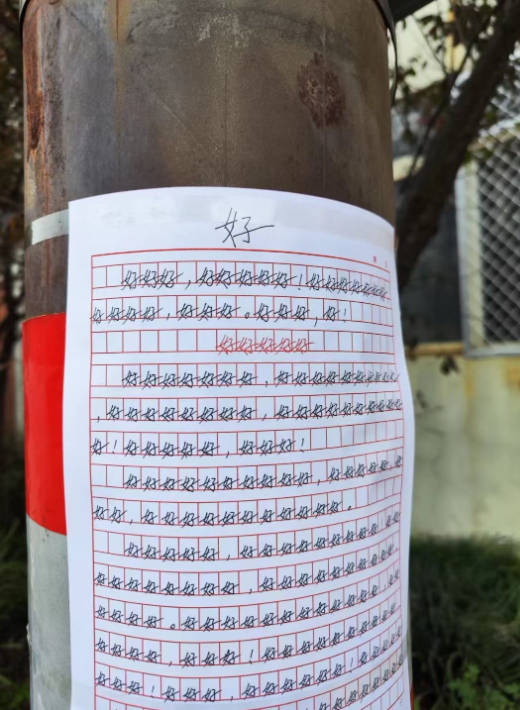 好
好好好好，好好好好好好！好好好好好
好好好好，好好好好。好好好，好！
好好好好好好
好好好好好好好好，好好好好好好好好
，好好好好好好好好好，好好好好好好好好
好！好好好好好好，好好好好！
好好好好好好好好好好好好，好好好好，好
好好，好好好好好好好好好好好好好。
好好好好好好，好好好好好好好好好，好
好好好好好好好好好，好好好好好好好好
好好好好。好好好好好好好好好好好好，好
好好好好，好好好好！好好好好好好好好
好好好！好好好好，好好好好好好！好好好